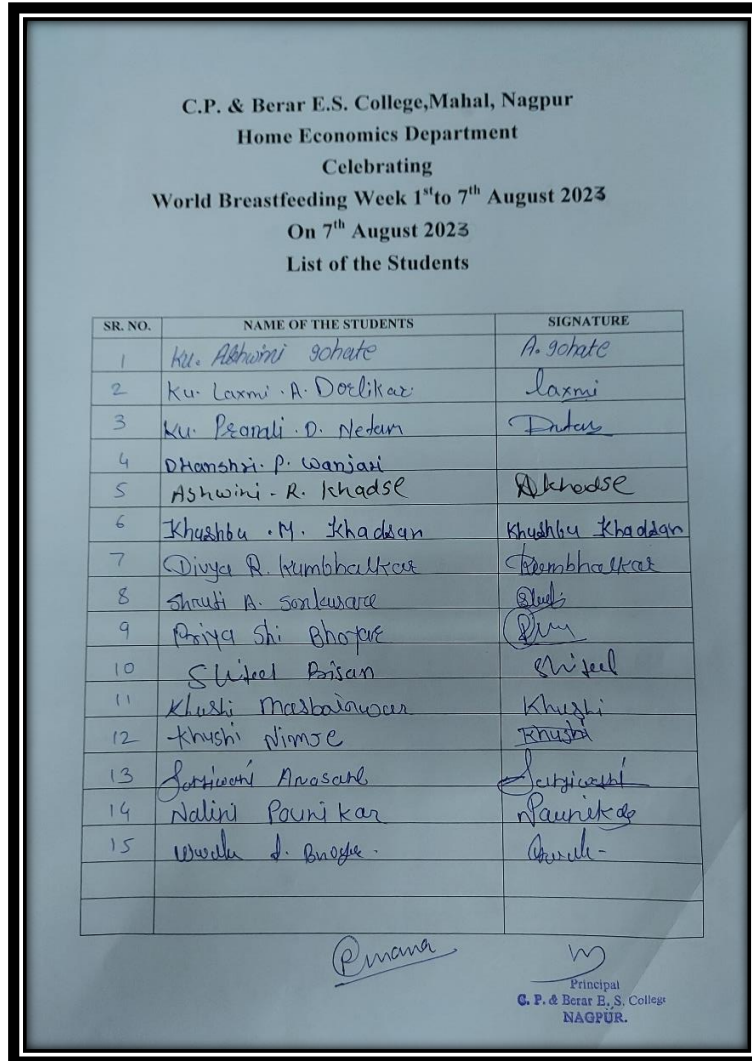 C.P. & Berar E.S. College,Mahal, Nagpur
Home Economics Department
Celebrating
World Breastfeeding Week 1st to 7th August 2023
On 7th August 2023
List of the Students
SR. NO. NAME OF THE STUDENTS SIGNATURE
1 Ku. Ashwini gohate A. gohate
2 Ku. Laxmi . A. Dorlikar. laxmi
3 Ku. Pranali . D. Netam
4 DHanshri. P. Wanjari
5 Ashwini - R. Khadse Akhadse
6 Khushbu . M. Khadsan Khushbu Khadsan
7 Divya R. Kumbhalkar Kumbhalkar
8 Shruti A. Sonkusare
9 Priya Shi Bhojar
10 Bisan
11 Khushi Khushi
12 Khushi Nimje Khushi
13
14 Nalini Pounikar Paunikar
15
Principal
C. P. & Berar E. S. College
NAGPUR.